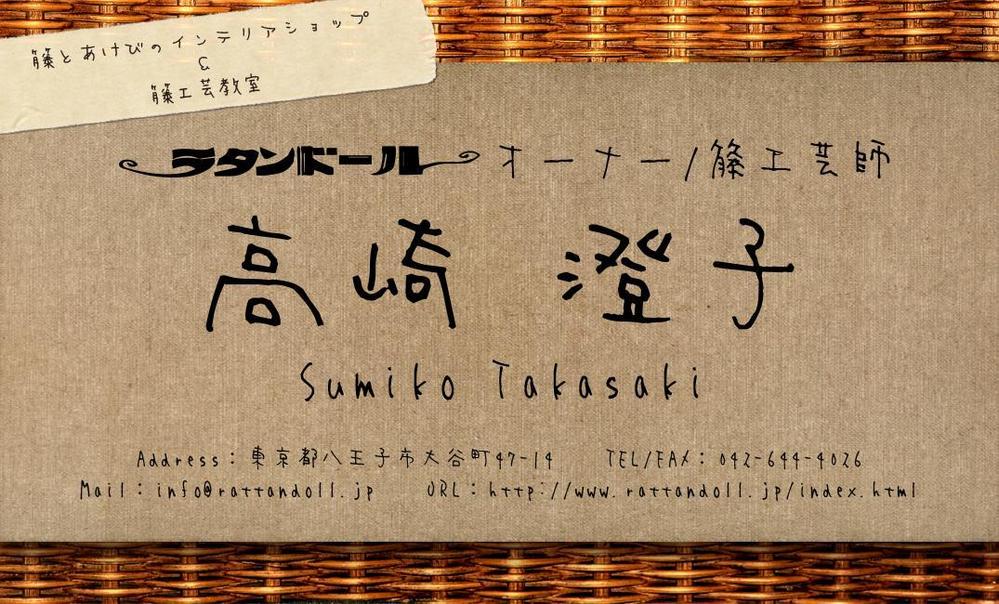 籐とあけびのインテリアショップ
&
籐工芸教室
ラタンドール オーナー/籐工芸師
高崎 澄子
Sumiko Takasaki
Address：東京都八王子市大谷町47-14 TEL/FAX：042-644-4026
Mail：info@rattandoll.jp URL：http://www.rattandoll.jp/index.html